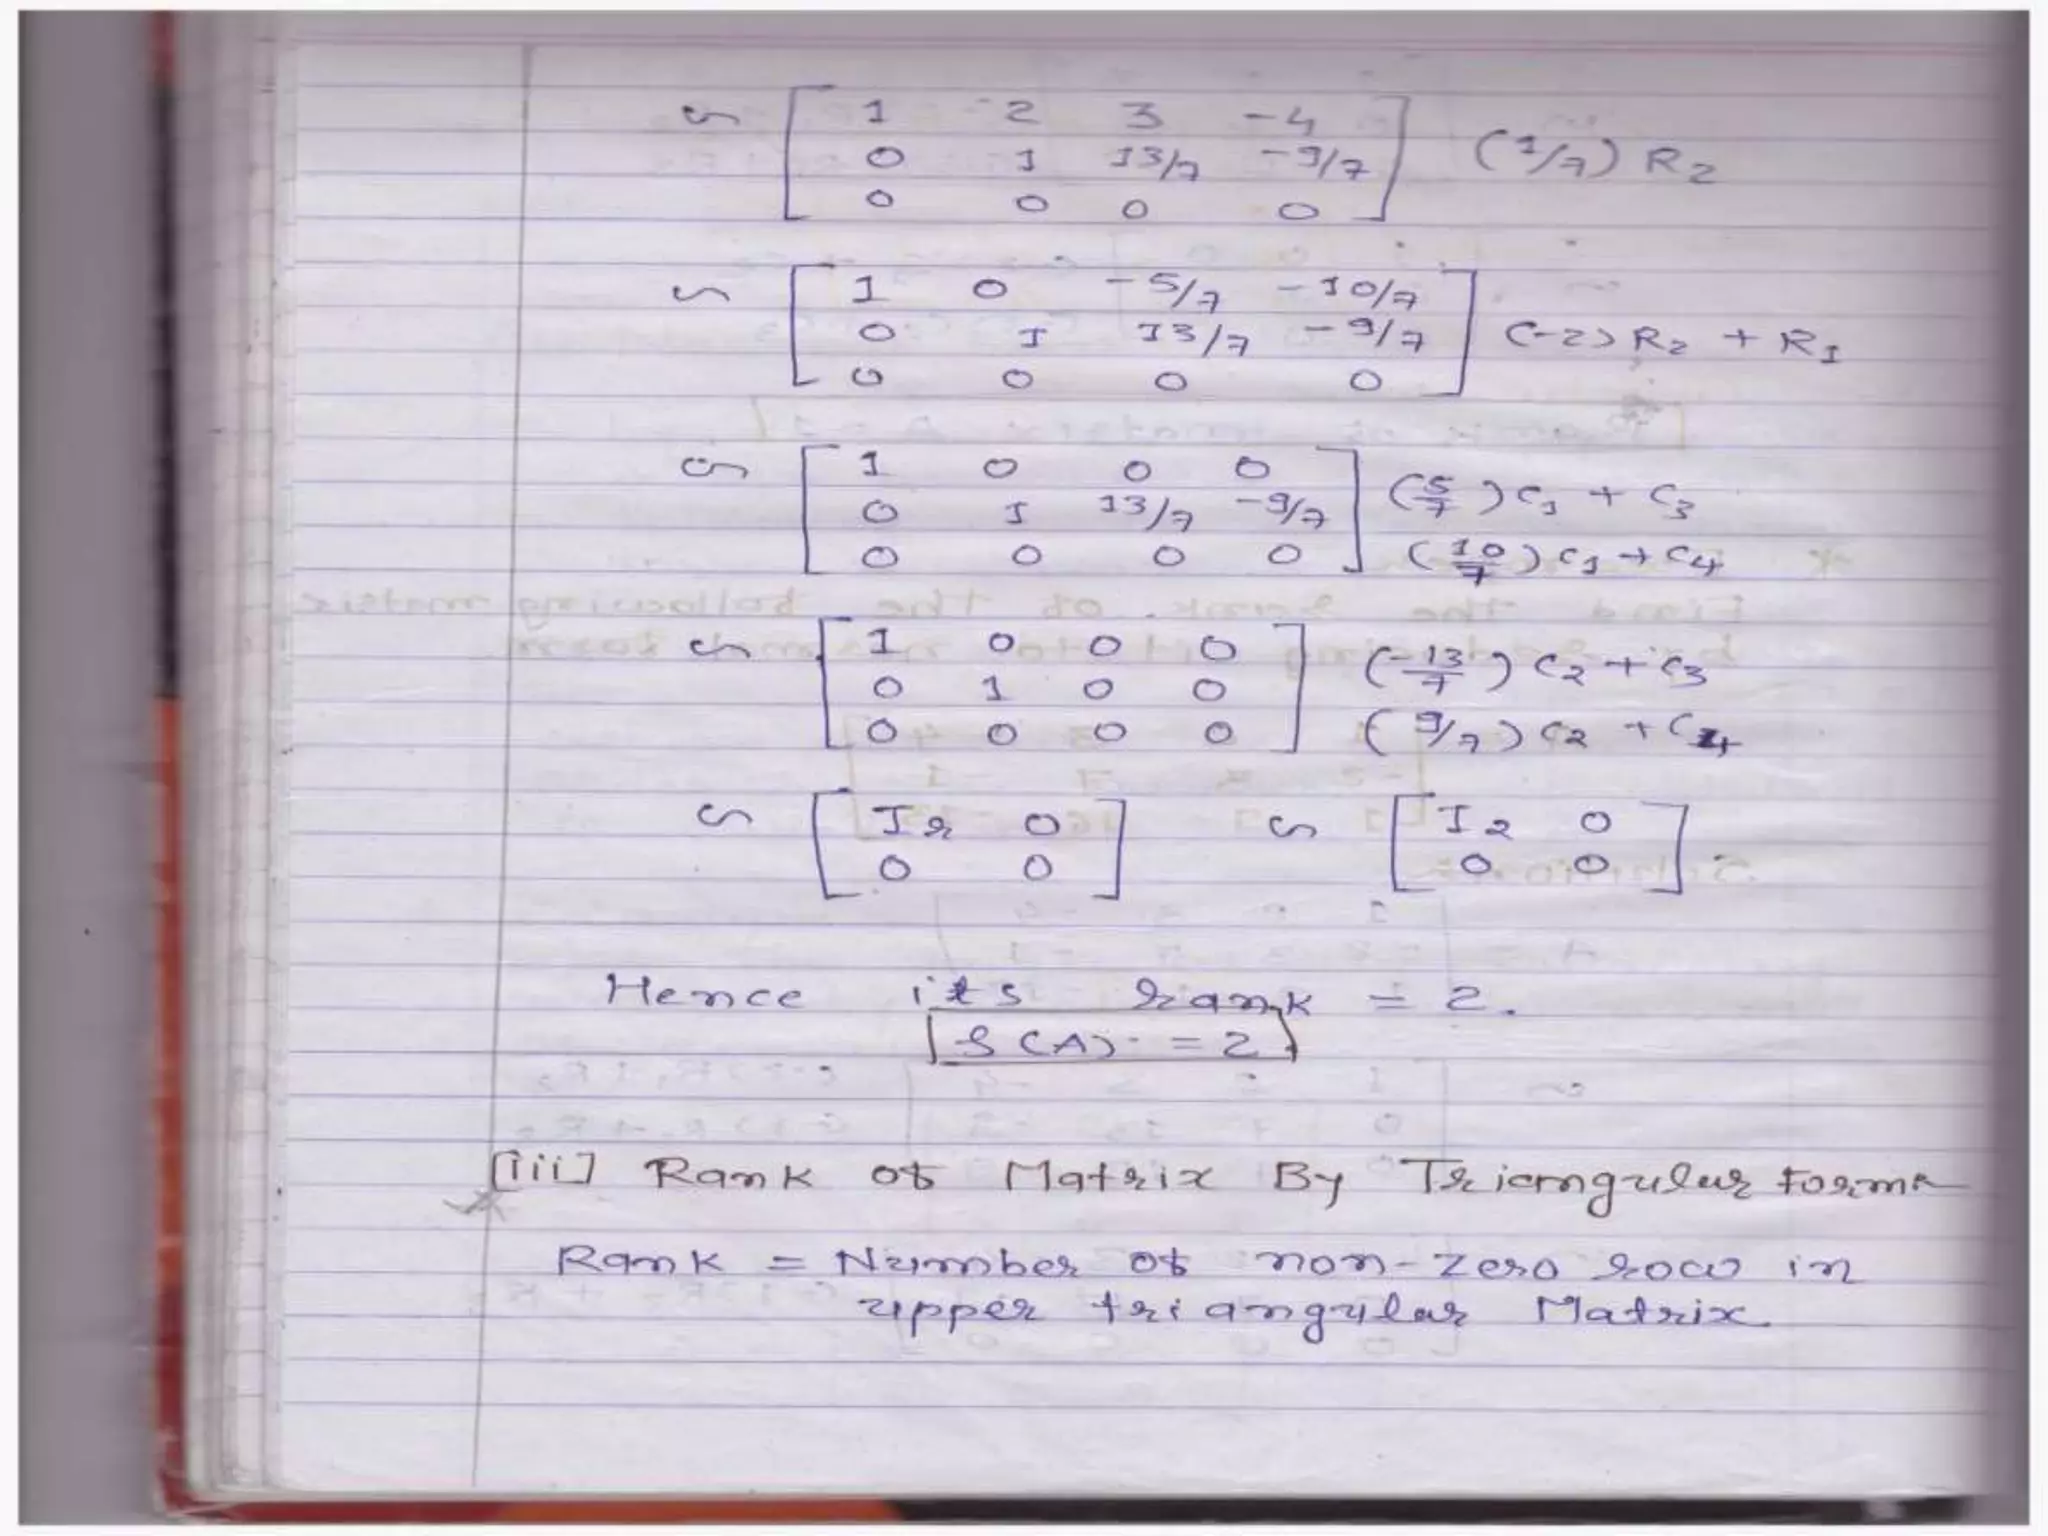 ~ [ 1 2 3 -4
0 1 13/7 -9/7
0 0 0 0 ] (1/7) R2
~ [ 1 0 -5/7 -10/7
0 1 13/7 -9/7
0 0 0 0 ] (-2) R2 + R1
~ [ 1 0 0 0
0 1 13/7 -9/7
0 0 0 0 ] (5/7) C1 + C3
(10/7) C1 + C4
~ [ 1 0 0 0
0 1 0 0
0 0 0 0 ] (-13/7) C2 + C3
(9/7) C2 + C4
~ [ Ir 0
0 0 ] ~ [ I2 0
0 0 ].
Hence its rank = 2.
ρ(A) = 2
[iii] Rank of Matrix By Triangular form
Rank = Number of non-zero row in
upper triangular Matrix.